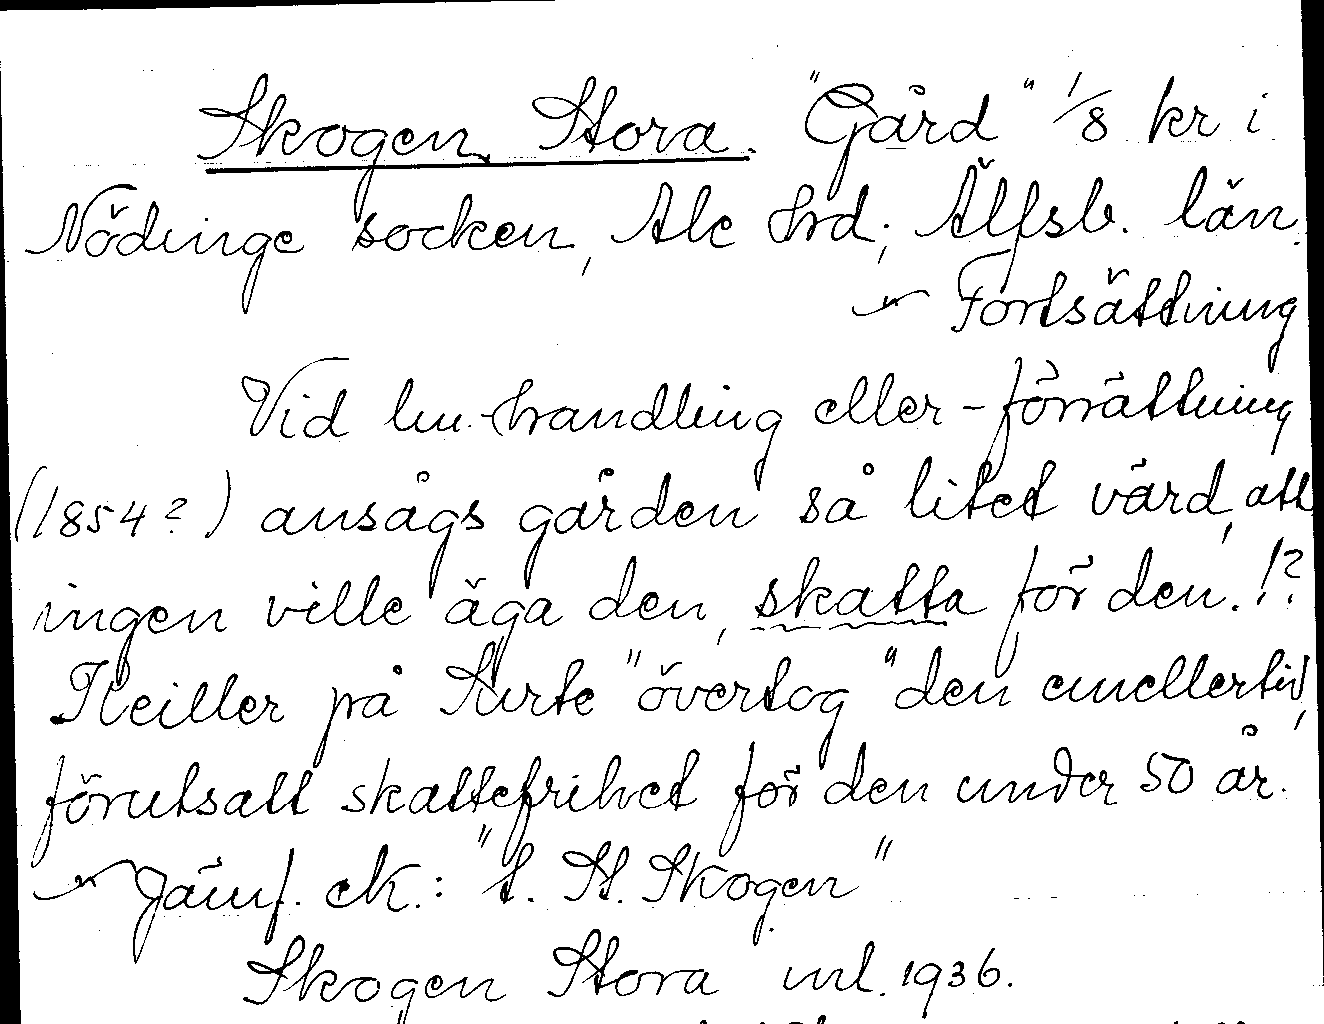 Skogen, Stora. "Gård" 1/8 kr i
Nödinge socken, Ale Hrd; Älfsb. län.
Fortsättning
Vid lm-handling eller -förrättning
(1854?) ansågs gården så litet värd, att
ingen ville äga den, skatta för den. !?
Keiller på Surte "övertog" den emellertid,
förutsatt skattefrihet för den under 50 år.
Jämf. ek.: "t. St. Skogen"
Skogen Stora 1936.